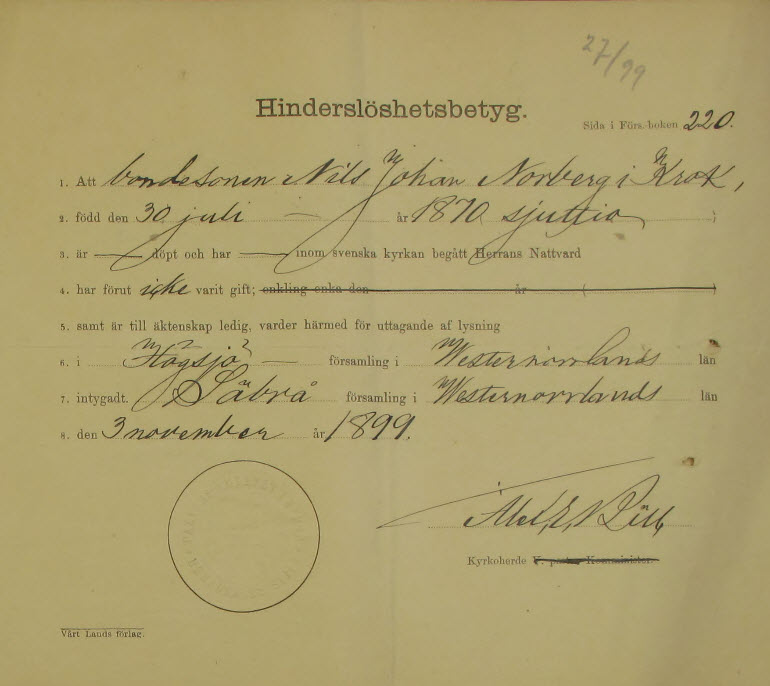 27/99
Hinderslöshetsbetyg.
Sida i Förs.-boken 220.
1. Att bondesonen Nils Johan Norberg i Krok,
2. född den 30 juli — år 1870 sjuttio )
3. är — döpt och har — inom svenska kyrkan begått Herrans Nattvard
4. har förut icke varit gift; enkling enka den år ( )
5. samt är till äktenskap ledig, varder härmed för uttagande af lysning
6. i Högsjö — församling i Westernorrlands län
7. intygadt. Säbrå församling i Westernorrlands län
8. den 3 november år 1899.
Kyrkoherde V. pastor Komminister.
Vårt Lands förlag.